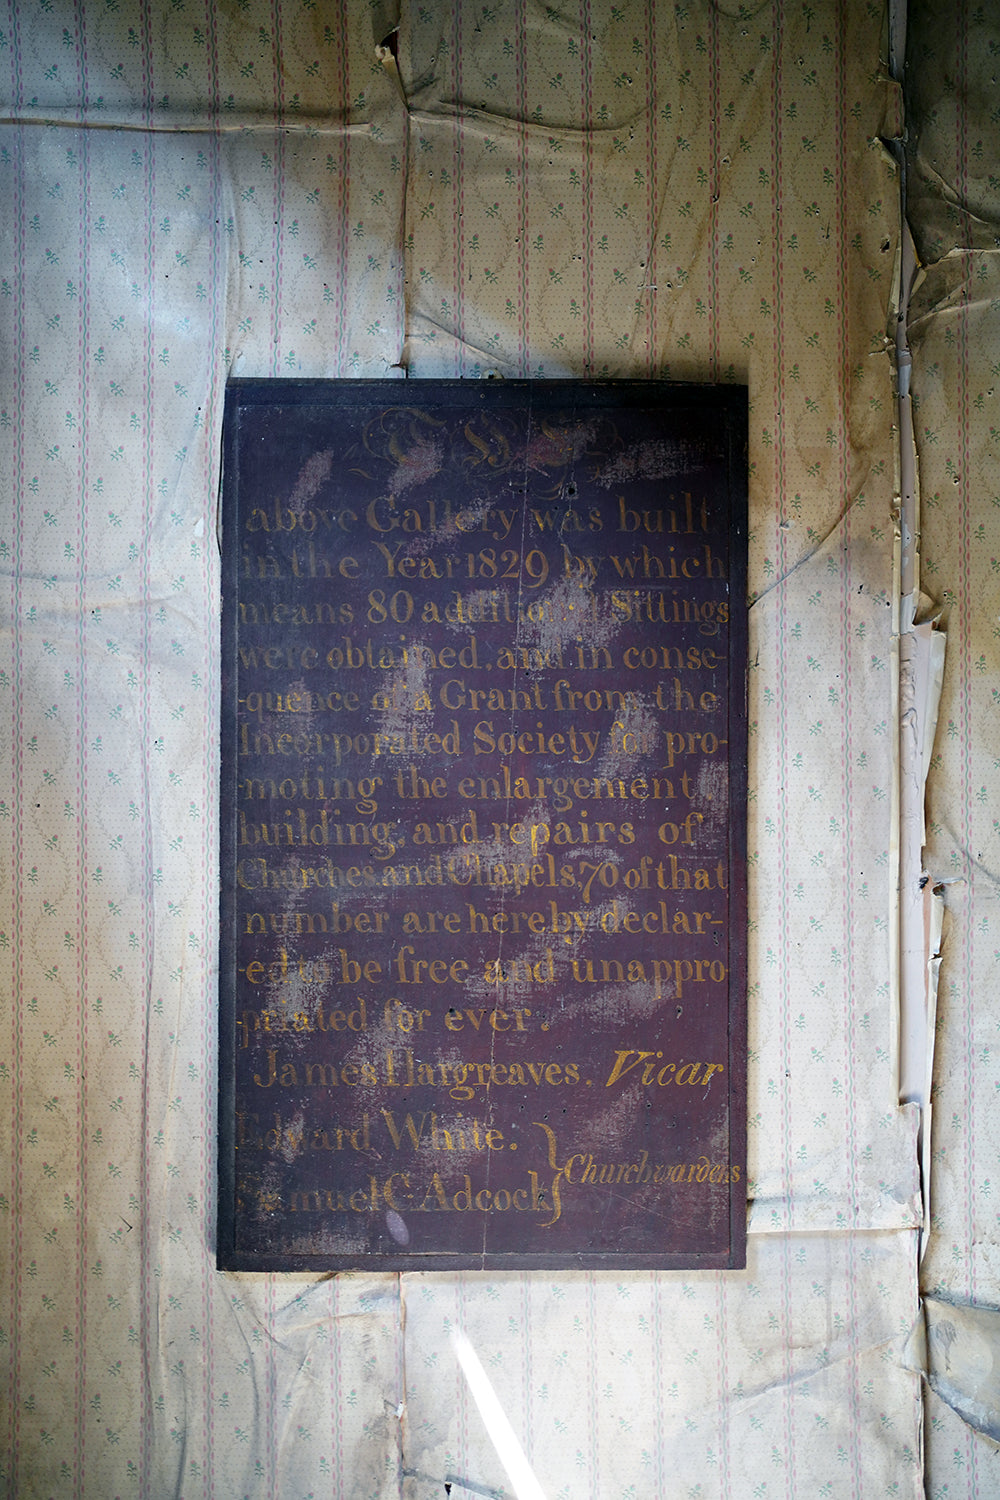 THE
above Gallery was built
in the Year 1829 by which
means 80 additional Sittings
were obtained, and in conse-
-quence of a Grant from the
Incorporated Society for pro-
-moting the enlargement
building, and repairs of
Churches and Chapels, 70 of that
number are hereby declar-
-ed to be free and unappro-
priated for ever.
James Hargreaves, Vicar
Edward White.
Samuel C. Adcock } Churchwardens